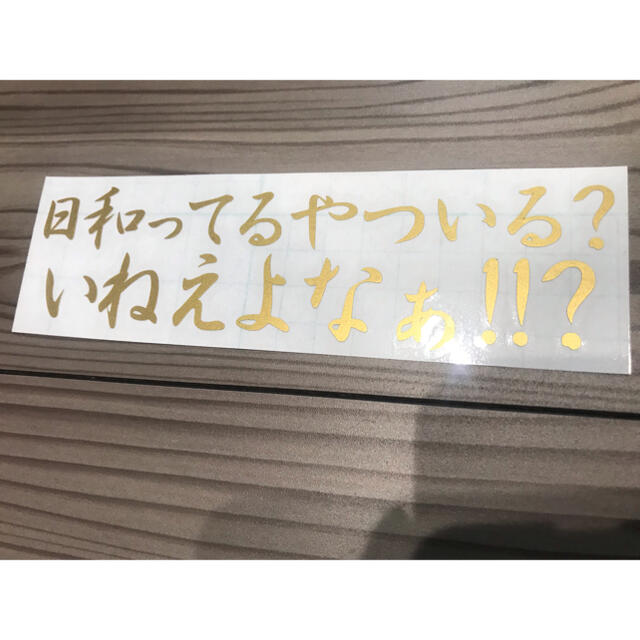 日和ってるやついる?
いねえよなぁ!!?